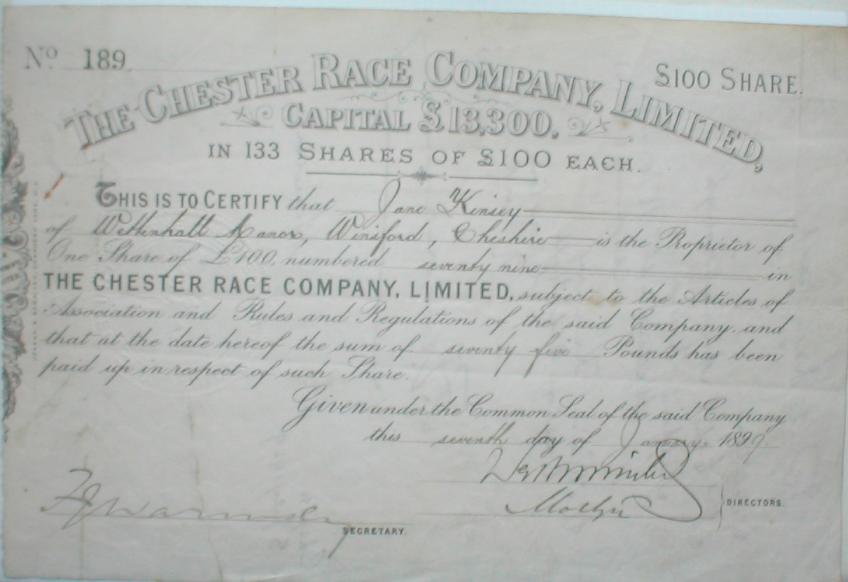 No 189
£100 SHARE.
THE CHESTER RACE COMPANY, LIMITED,
CAPITAL £13,300.
IN 133 SHARES OF £100 EACH.
THIS IS TO CERTIFY that Jane Kinsey
of Wettenhall Manor, Winsford, Cheshire is the Proprietor of
One Share of £100, numbered seventy nine in
THE CHESTER RACE COMPANY, LIMITED, subject to the Articles of
Association and Rules and Regulations of the said Company, and
that at the date hereof the sum of seventy five Pounds has been
paid up in respect of such Share.
Given under the Common Seal of the said Company
this seventh day of January 1897
Westminster
Mostyn
DIRECTORS.
SECRETARY.